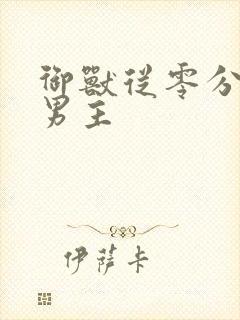 御獸從零分
男主
伊薩卡